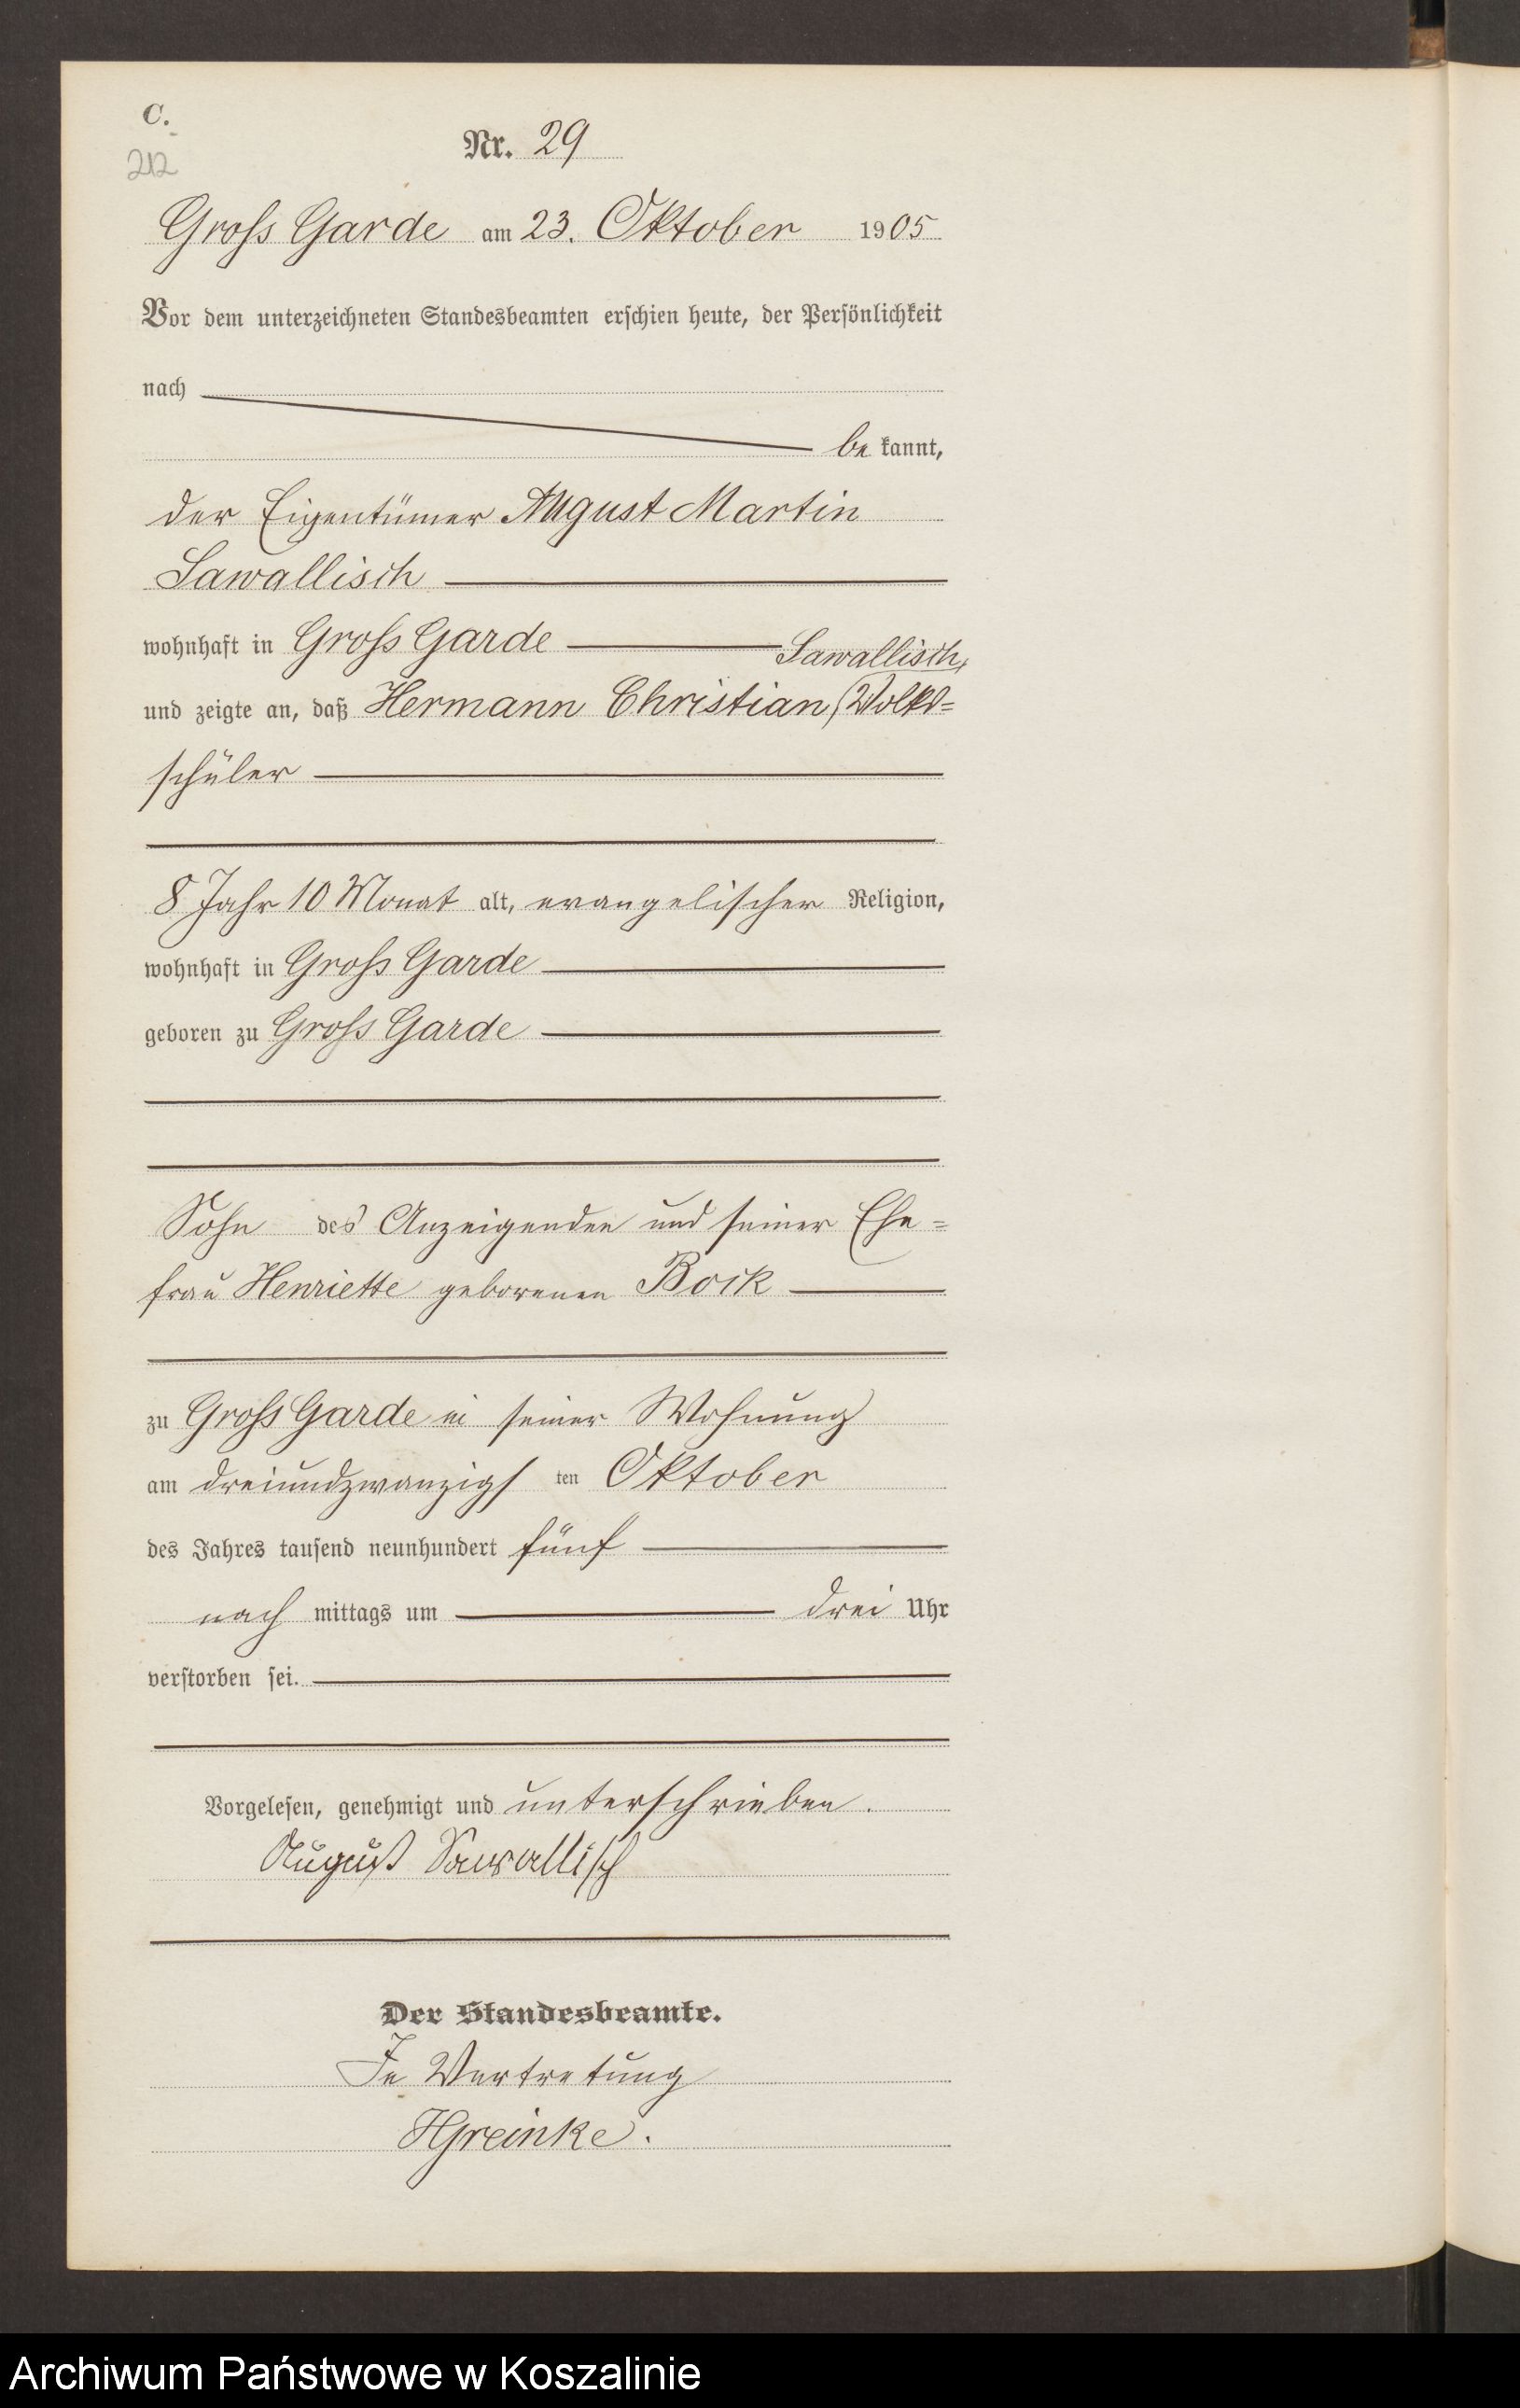 C.
212
Nr. 29
Gross Garde am 23. Oktober 1905
Vor dem unterzeichneten Standesbeamten erschien heute, der Persönlichkeit
nach
be kannt,
der Eigentümer August Martin
Sawallisch
wohnhaft in Gross Garde
Sawallisch,
und zeigte an, daß Hermann Christian, Volks=
schüler
8 Jahr 10 Monat alt, evangelischer Religion,
wohnhaft in Gross Garde
geboren zu Gross Garde
Sohn des Anzeigenden und seiner Ehe=
frau Henriette geborenen Bock
zu Gross Garde in seiner Wohnung
am dreiundzwanzigs ten Oktober
des Jahres tausend neunhundert fünf
nach mittags um drei Uhr
verstorben sei.
Vorgelesen, genehmigt und unterschrieben.
August Sawallisch
Der Standesbeamte.
In Vertretung
HGreinke.
Archiwum Państwowe w Koszalinie